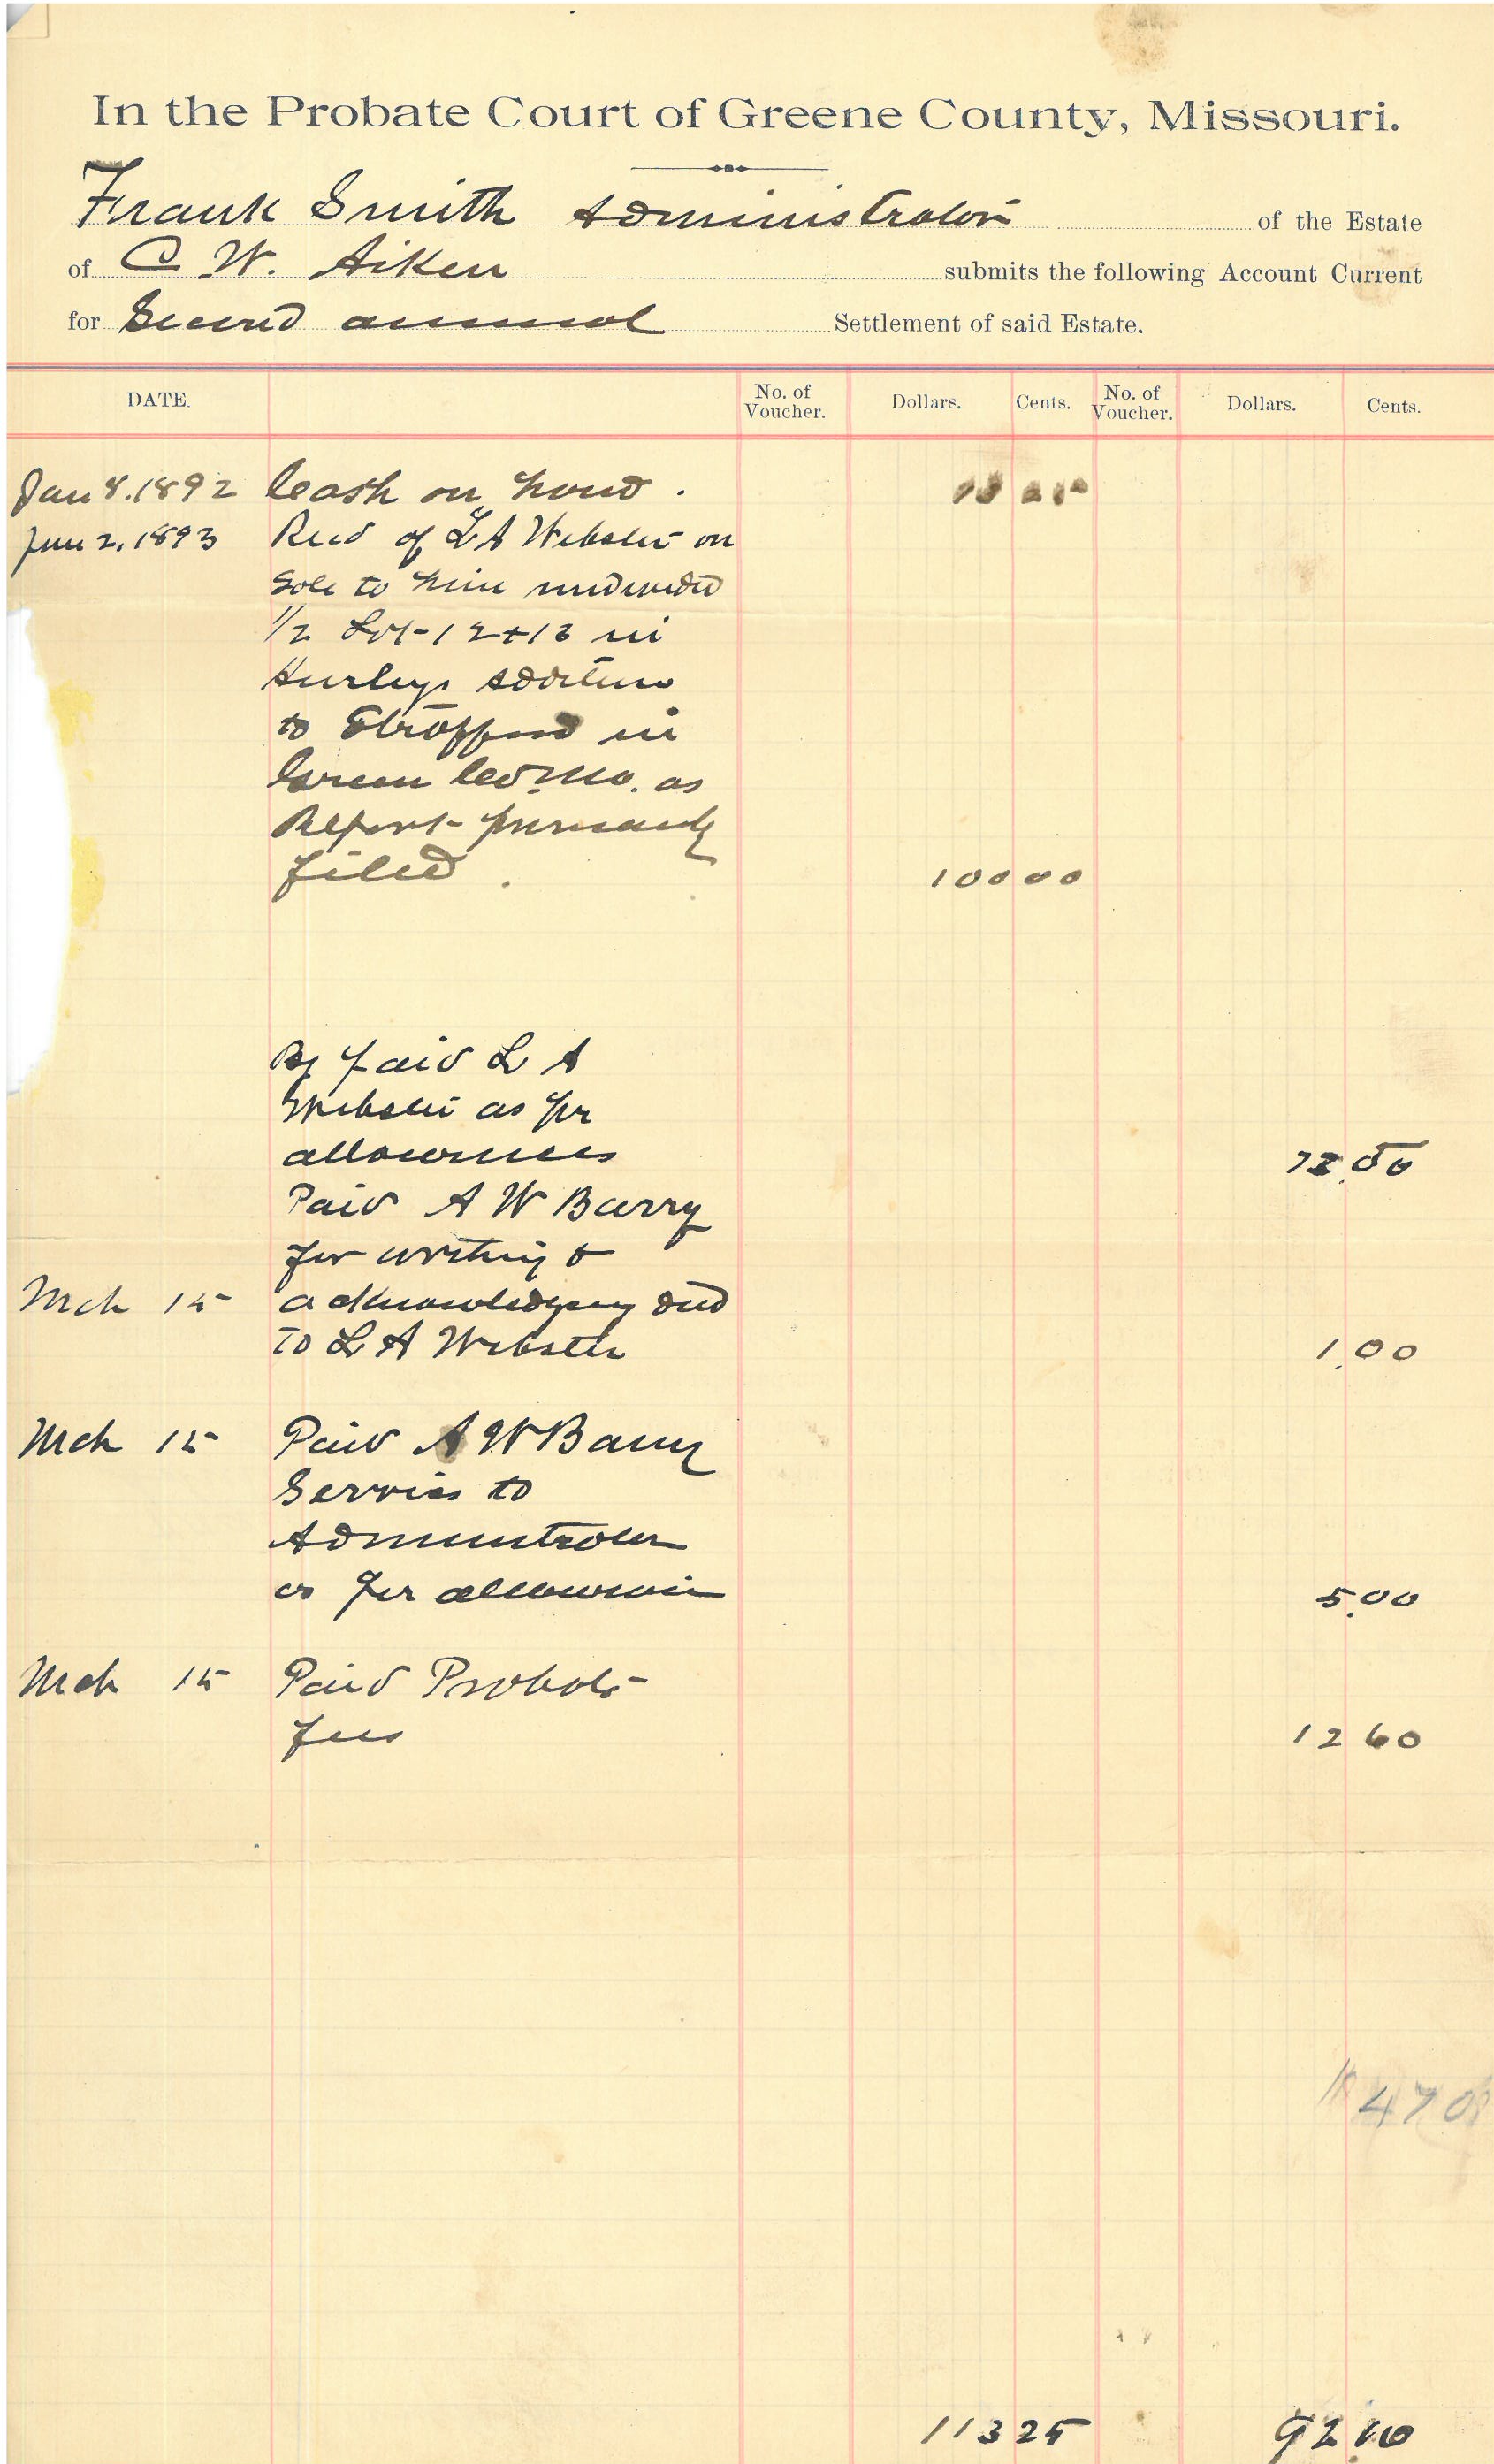 In the Probate Court of Greene County, Missouri.
Frank Smith Administrator of the Estate
of C W. Aiken submits the following Account Current
for Second annual Settlement of said Estate.
DATE. No. of Voucher. Dollars. Cents. No. of Voucher. Dollars. Cents.
Jan 8. 1892 Cash on hand.
2, 1893 Recd of L A Webster on
Sale to him undivided
1/2 Lot 12 + 13 in
Hurleys Addition
to Strafford in
Green Co Mo. as
Report
filed. 100 00
By paid L A
Webster as per
allowances
Paid A W Barry
for writing &
Mch 15 acknowledging deed
to L A Webster 1.00
Mch 15 Paid A W Barry
Services to
Administrator
as per allowance 5.00
Mch 15 Paid Probate
fees 12 60
113 25